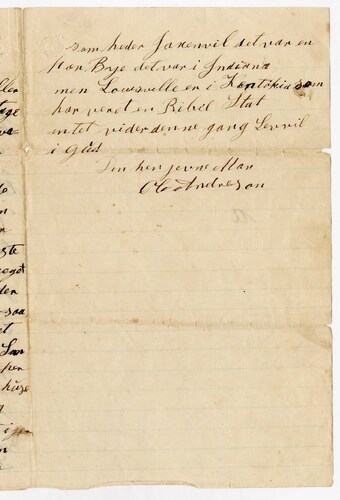 som heder Jaxenvil det var en
stor Bye det var i Indiana
men Lousvelle er i Kentukia som
har veret en Ribil Stat
entet vider denne gang Levvil
i Gud
Din hen jevne Man
Ole Andreson
ller
tage
va
n
n
este
eget
den
saa
et
per
huse